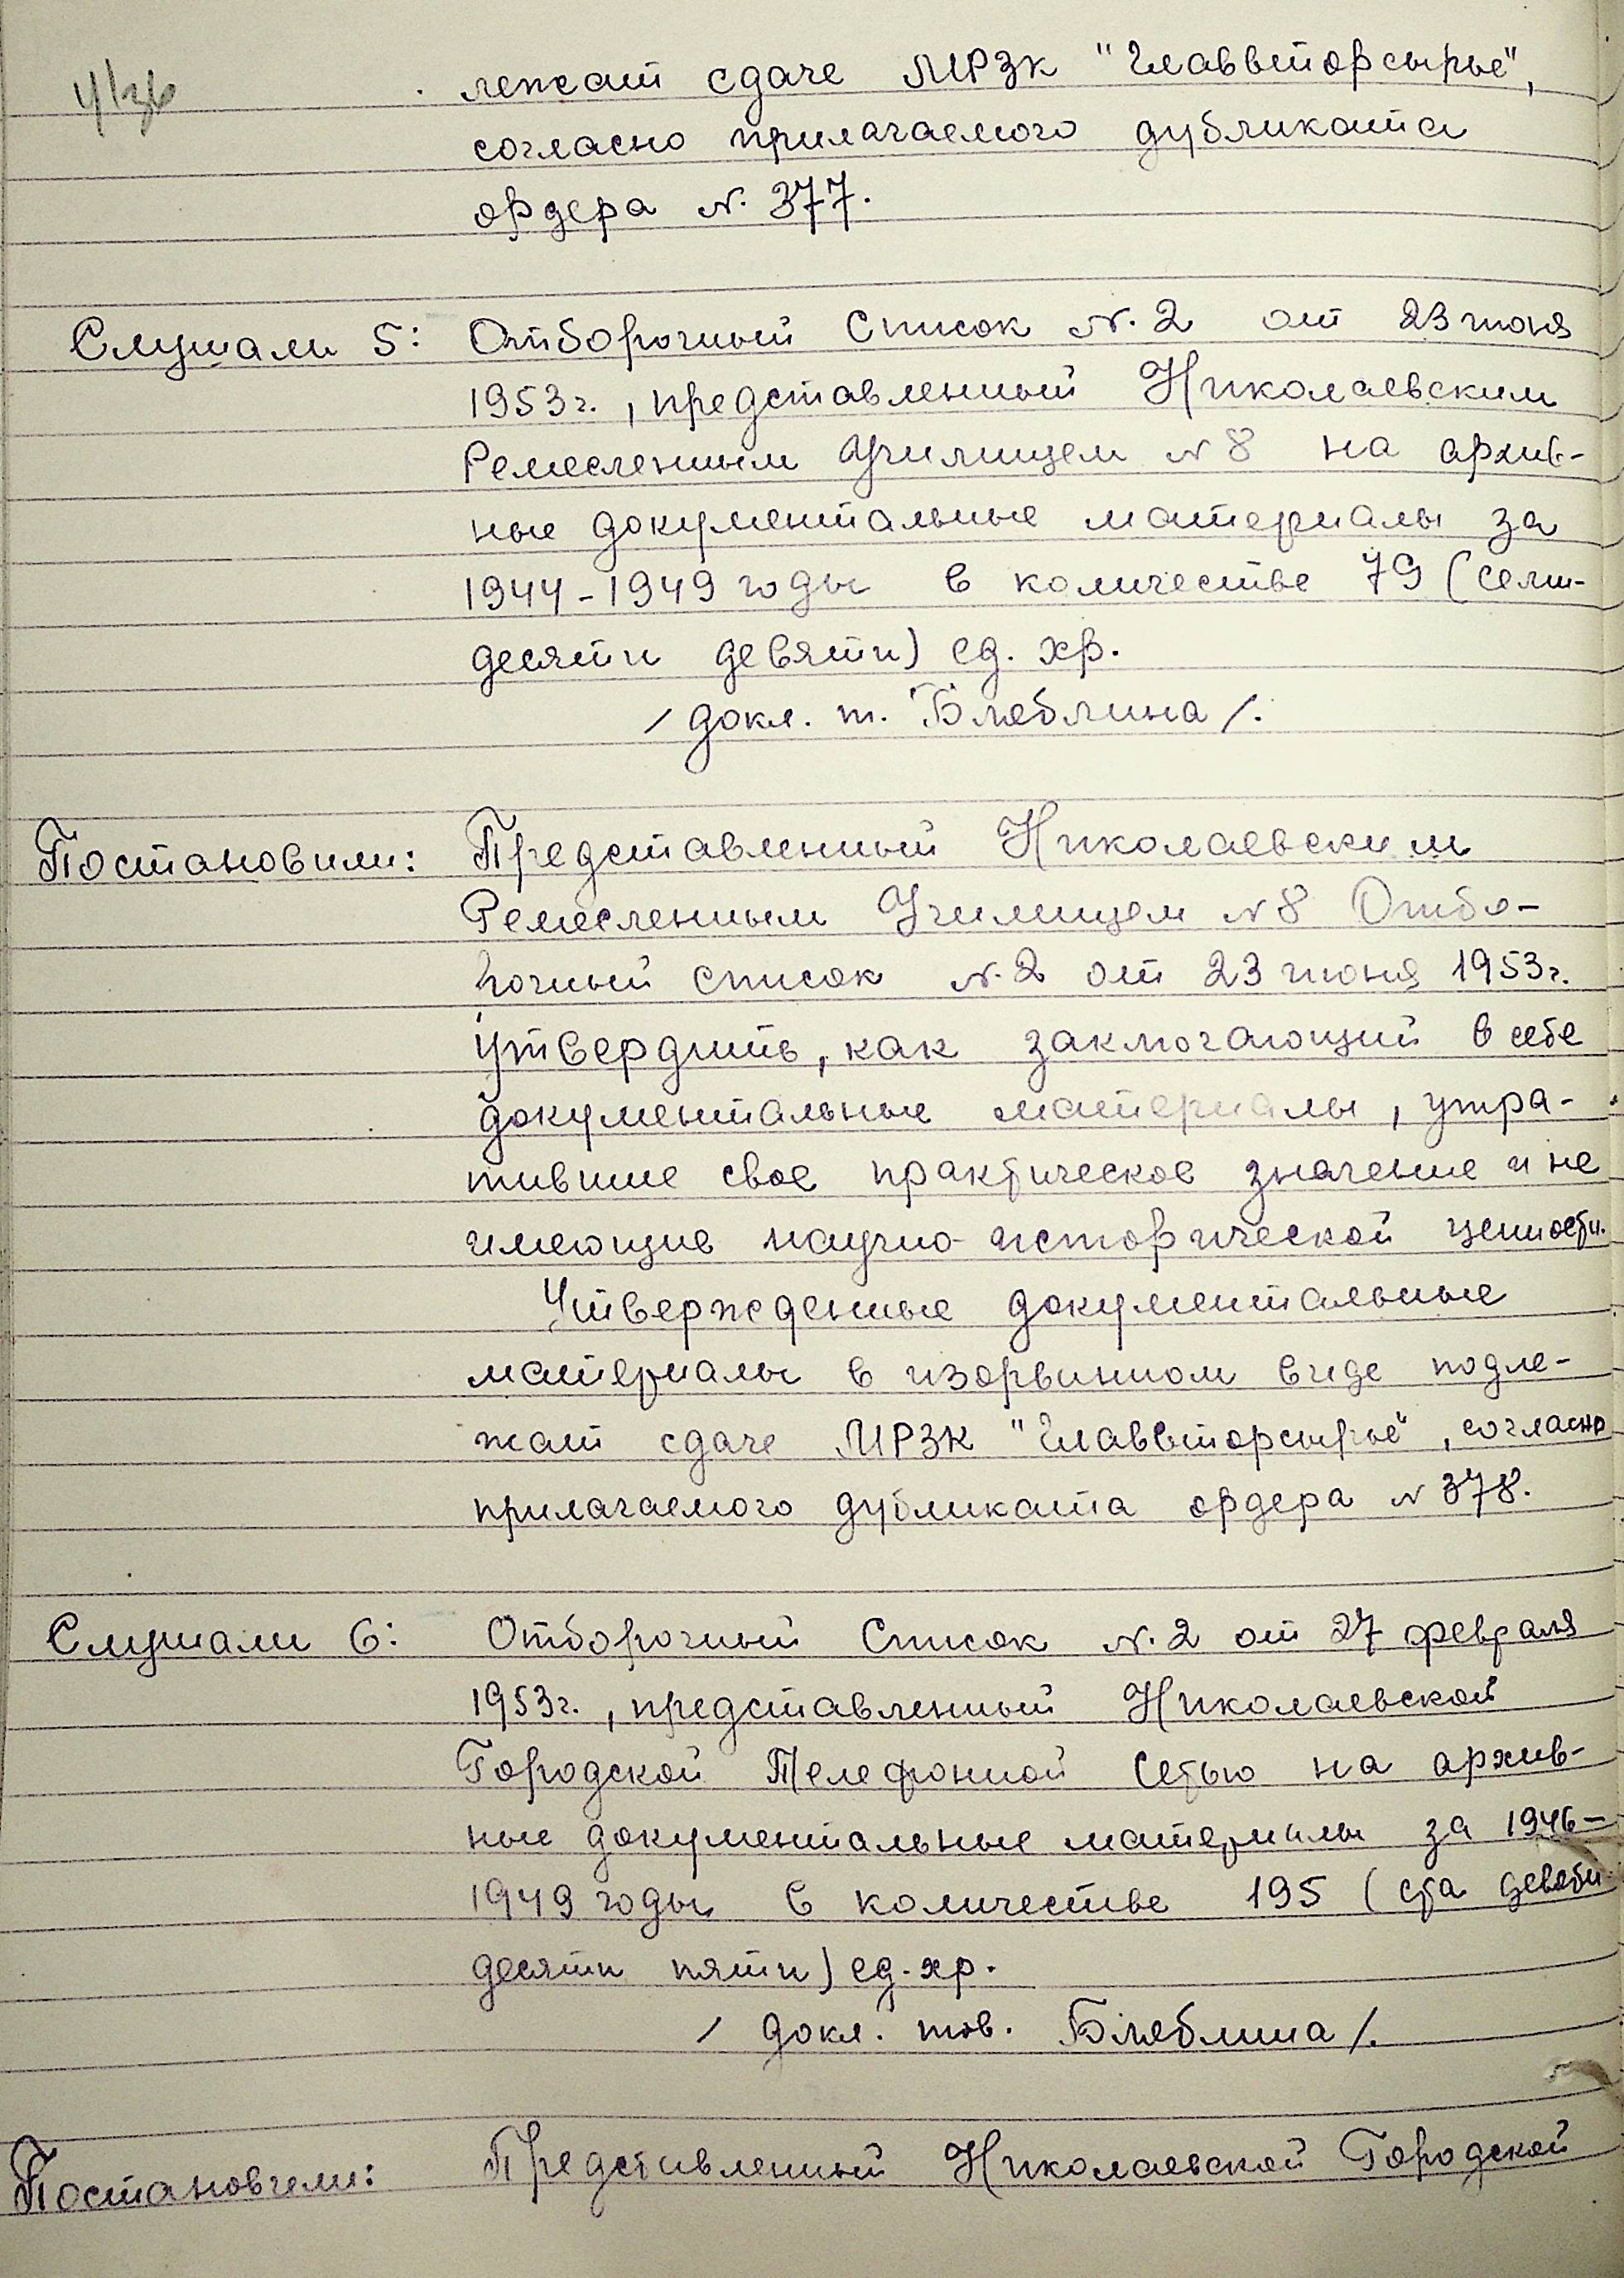 лежат сдаче МРЗК "Главвторсырье",
согласно прилагаемого дубликата
ордера N. 377.
Слушали 5: Отборочный Список N. 2 от 23 июня
1953г., представленный Николаевским
Ремесленным Училищем N 8 на архив-
ные документальные материалы за
1944-1949 годы в количестве 79 (семи-
десяти девяти) ед. хр.
/ докл. т. /.
Постановили: Представленный Николаевским
Ремесленным Училищем N 8 Отбо-
рочный список N. 2 от 23 июня 1953г.
утвердить, как заключающий в себе
документальные материалы, утра-
тившие свое практическое значение и не
имеющие научно-исторической ценности.
Утвержденные документальные
материалы в изорванном виде подле-
жат сдаче МРЗК "Главвторсырье", согласно
прилагаемого дубликата ордера N 378.
Слушали 6: Отборочный Список N. 2 от 27 февраля
1953г., представленный Николаевской
Городской Телефонной Сетью на архив-
ные документальные материалы за 1946-
1949 годы в количестве 195 (ста девяти
десяти пяти) ед. хр.
/ докл. тов. /.
Постановили: Представленный Николаевской Городской